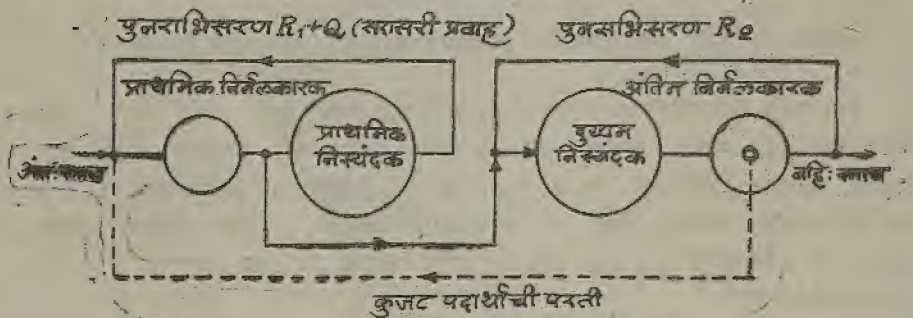 पुनराभिसरण R₁+Q (सरासरी प्रवाह) पुनराभिसरण R₂
प्राथमिक निर्मलकारक अंतिम निर्मलकारक
प्राथमिक
निस्यंदक
दुय्यम
निस्यंदक
अंतःस्त्राव बहिःस्त्राव
कुजट पदार्थाची परती